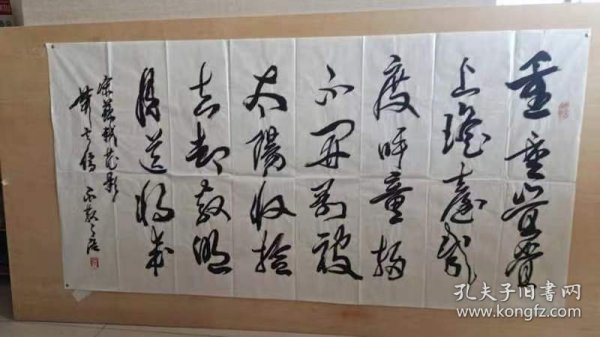 重重叠叠
上瑶臺幾
度呼童掃
不開剛被
太陽收拾
去却教明
月送將來
宋蘇軾花影
孔夫子旧书网
www.kongfz.com